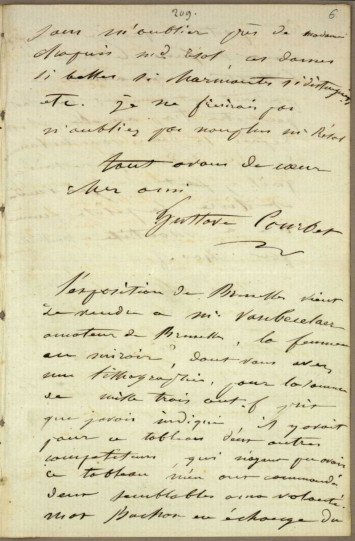 209.
6
sans m'oublier près de madame
chapuis md Rézol, ces dames
si belles si charmantes si distinguées
etc. je ne finirais pas
n'oubliez pas non plus mr Rézol
tout avous de cœur
cher ami
Gustave Courbet
l'exposition de Bruxelles vient
de vendre a mr
amateur de Bruxelles, la femme
au miroir, dont vous avez
une lithographie, pour la somme
de mille trois cent f prix
que j'avais indiqué, il y avait
pour ce tableau deux autres
competiteurs, qui n'ayant pu avoir
ce tableau m'en ont commandé
deux semblables a ma volonté.
en échange du